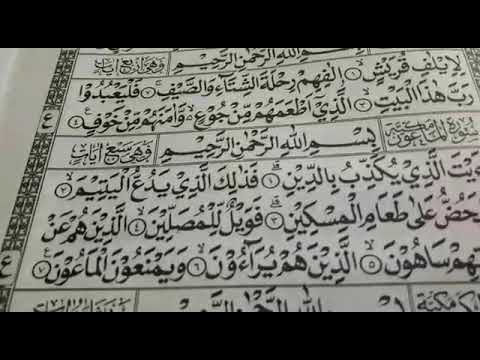 بِسْمِ اللهِ الرَّحْمٰنِ الرَّحِيْمِ وَهِيَ اَرْبَعُ اٰيَاتٍ
لِاِيْلٰفِ قُرَيْشٍ ۙ١ اٖلٰفِهِمْ رِحْلَةَ الشِّتَآءِ وَالصَّيْفِ ۚ٢ فَلْيَعْبُدُوْا
رَبَّ هٰذَا الْبَيْتِ ۙ٣ الَّذِيْ اَطْعَمَهُمْ مِنْ جُوْعٍ وَاٰمَنَهُمْ مِنْ خَوْفٍ ٤
سُوْرَةُ الْمَاعُوْنَ مَكِّيَّةٌ بِسْمِ اللهِ الرَّحْمٰنِ الرَّحِيْمِ وَهِيَ سَبْعُ اٰيَاتٍ
يْتَ الَّذِيْ يُكَذِّبُ بِالدِّيْنِ ١ فَذٰلِكَ الَّذِيْ يَدُعُّ الْيَتِيْمَ ۙ٢
يَحُضُّ عَلٰى طَعَامِ الْمِسْكِيْنِ ٣ فَوَيْلٌ لِلْمُصَلِّيْنَ ۙ٤ الَّذِيْنَ هُمْ عَنْ
تِهِمْ سَاهُوْنَ ۙ٥ الَّذِيْنَ هُمْ يُرَآءُوْنَ ۙ٦ وَيَمْنَعُوْنَ الْمَاعُوْنَ ٧
مَكِّيَّةٌ اللهِ الرَّحْمٰنِ الرَّحِيْمِ